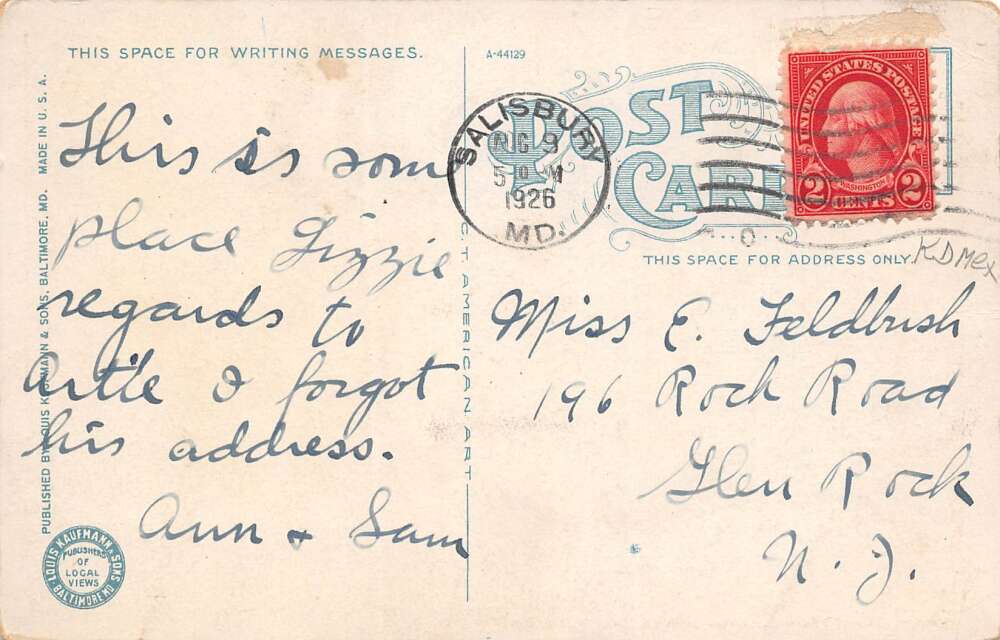 THIS SPACE FOR WRITING MESSAGES.
A-44129
POST
CARD
THIS SPACE FOR ADDRESS ONLY.
SALISBURY
AUG 9
5 M
1926
MD.
UNITED STATES POSTAGE
WASHINGTON
2 CENTS 2
KDMex
This is some
place Lizzie
regards to
Artie I forgot
his address.
Ann & Sam
Miss E. Feldbush
196 Rock Road
Glen Rock
N. J.
PUBLISHED BY LOUIS KAUFMANN & SONS, BALTIMORE, MD. MADE IN U. S. A.
C.T. AMERICAN ART
LOUIS KAUFMANN & SONS
PUBLISHERS
OF
LOCAL
VIEWS
BALTIMORE MD